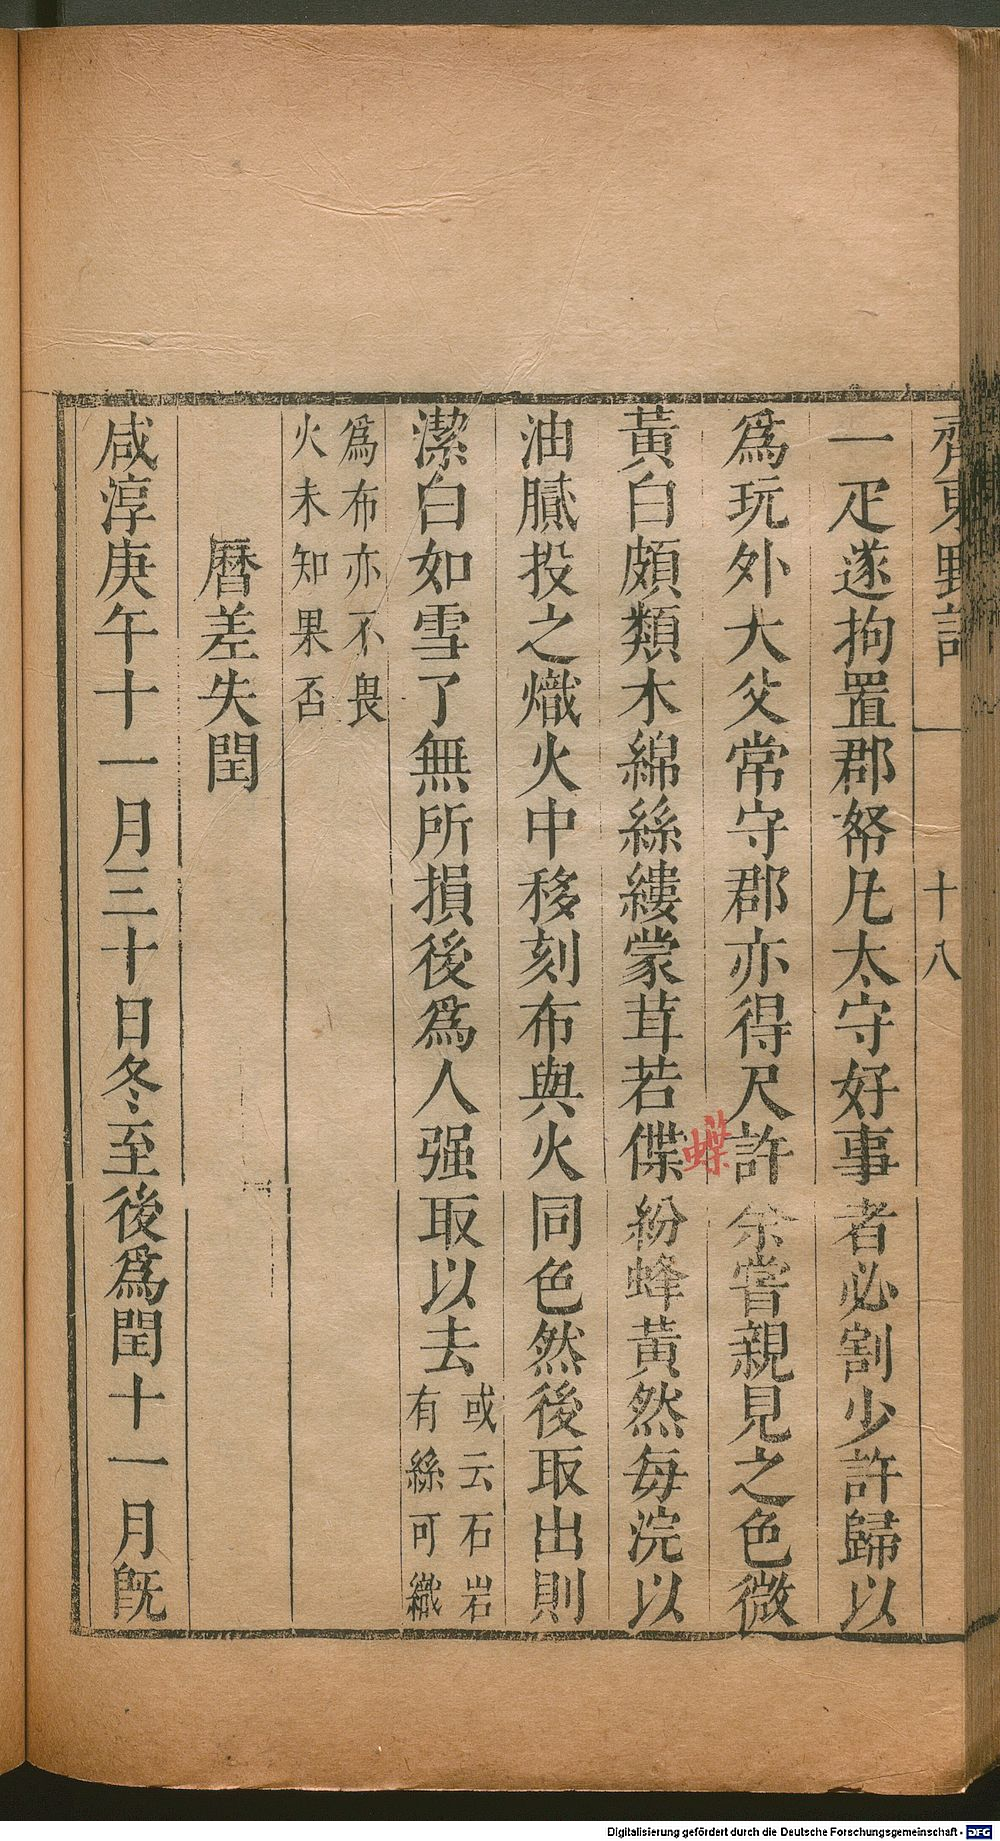 齊東野語
十八
一疋遂拘置郡帑凡太守好事者必割少許歸以
爲玩外大父常守郡亦得尺許余嘗親見之色微
蝶
黃白頗類木綿絲縷蒙茸若偞紛蜂黃然每浣以
油膩投之熾火中移刻布與火同色然後取出則
潔白如雪了無所損後爲人强取以去或云石岩有絲可織
爲布亦不畏火未知果否
曆差失閏
咸淳庚午十一月三十日冬至後爲閏十一月旣
Digitalisierung gefördert durch die Deutsche Forschungsgemeinschaft - DFG